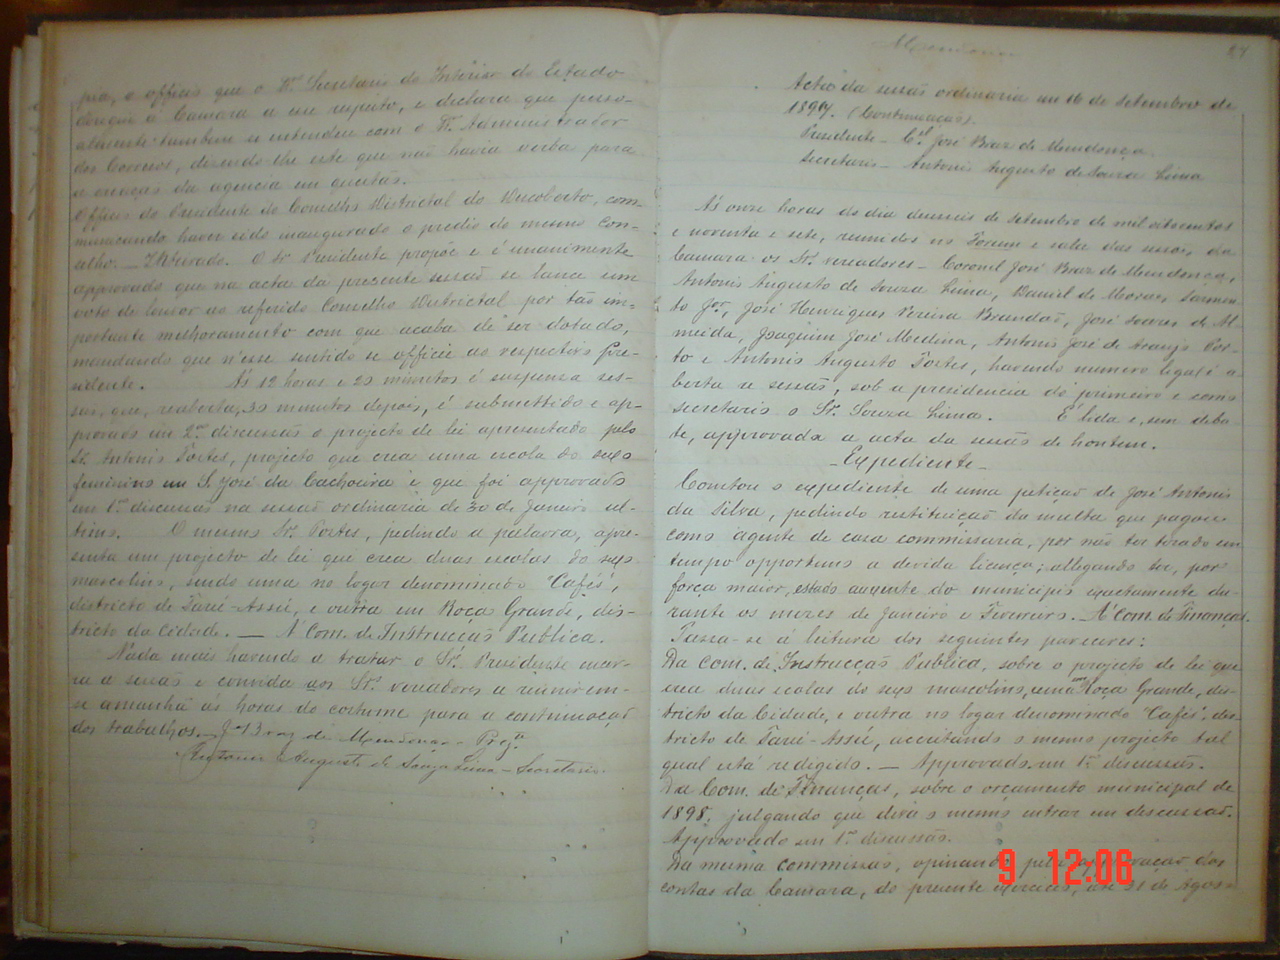 pia, o officio que o Dr. Secretario do Interior do Estado
dirigiu á Camara a esse respeito, e declara que pesso-
almente tambem se entendeu com o Dr. Administrador
dos Correios, dizendo-lhe este que não havia verba para
a creação da agencia em questão.
Officio do Presidente do Conselho Districtal do Descoberto, com-
municando haver sido inaugurado o predio do mesmo con-
selho. — Inteirado. O Sr. Presidente propõe e é unanimemente
approvado que na acta da presente sessão se lance um
voto de louvor ao referido Conselho Districtal por tão im-
portante melhoramento com que acaba de ser dotado,
mandando que n'esse sentido se officie ao respectivo Pre-
sidente. Ás 12 horas e 20 minutos é suspensa ses-
são, que, reaberta, 30 minutos depois, é submettido e ap-
provado em 2ª discussão o projecto de lei apresentado pelo
Sr. Antonio Portes, projecto que crea uma escola do sexo
feminino em S. José da Cachoeira e que foi approvado
em 1ª discussão na sessão ordinaria de 30 de Janeiro ul-
timo. O mesmo Sr. Portes, pedindo a palavra, apre-
senta um projecto de lei que crea duas escolas do sexo
masculino, sendo uma no logar denominado "Cafés",
districto de Taru-Assú, e outra em Roça Grande, dis-
tricto da Cidade. — Á Com. de Instrucção Publica.
Nada mais havendo a tratar o Sr. Presidente encer-
ra a sessão e convida aos Srs. vereadores a reunirem-
se amanhã ás horas do costume para a continuação
dos trabalhos. J. Braz de Mendonça - Prezte
Antonio Augusto de Souza Lima - Secretario.
Mendonça
27
Acta da sessão ordinaria em 16 de Setembro de
1897. (Continuação).
Presidente - Cel. José Braz de Mendonça.
Secretario - Antonio Augusto de Souza Lima
Ás onze horas do dia deseseis de Setembro de mil oitocentos
e noventa e sete, reunidos no Forum e sala das sessões da
Camara os Srs. vereadores - Coronel José Braz de Mendonça,
Antonio Augusto de Souza Lima, Daniel de Moraes Sarmen-
to Jor, José Henriques Pereira Brandão, José Soares de Al-
meida, Joaquim José Medina, Antonio José de Araujo Por-
to e Antonio Augusto Portes, havendo numero legal é a-
berta a sessão, sob a presidencia do primeiro e como
secretario o Sr. Souza Lima. É lida e, sem deba-
te, approvada a acta da sessão de hontem.
- Expediente -
Constou o expediente de uma petição de José Antonio
da Silva, pedindo restituição da multa que pagou
como agente de casa commissaria, por não ter tirado em
tempo opportuno a devida licença; allegando ter, por
força maior, estado ausente do municipio exactamente du-
rante os mezes de Janeiro e Fevereiro. Á Com. de Finanças.
Passa-se á leitura dos seguintes pareceres:
Da Com. de Instrucção Publica, sobre o projecto de lei que
crea duas escolas do sexo masculino, uma em Roça Grande, dis-
tricto da Cidade, e outra no logar denominado "Cafés", dis-
tricto de Taru-Assú, acceitando o mesmo projecto tal
qual está redigido. — Approvado em 1ª discussão.
Da Com. de Finanças, sobre o orçamento municipal de
1898, julgando que deve o mesmo entrar em discussão.
Approvado em 1ª discussão.
Da mesma commissão, opinando pela approvação das
contas da Camara, do presente exercicio, até 31 de Agos-
9 12:06